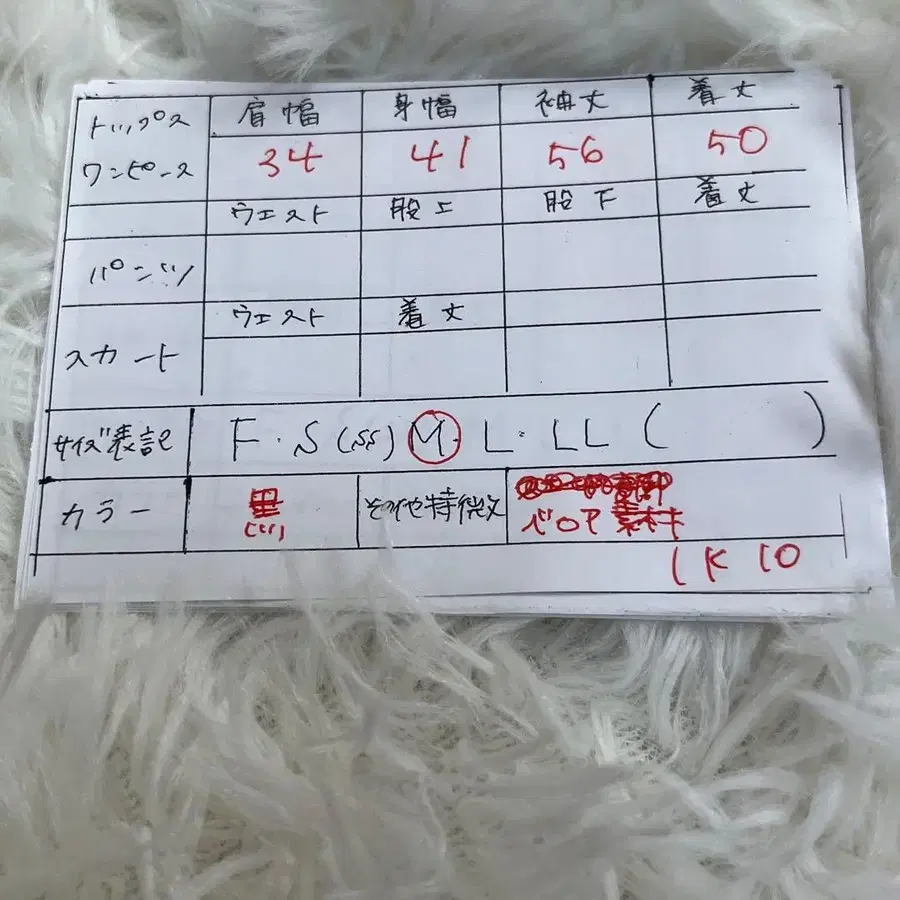 トップス ワンピース 肩幅 身幅 袖丈 着丈
34 41 56 50
パンツ ウェスト 股上 股下 着丈
スカート ウェスト 着丈
サイズ表記 F・S(SS)M・L・LL( )
カラー 黒 その他特徴 ベロア素材
1K10